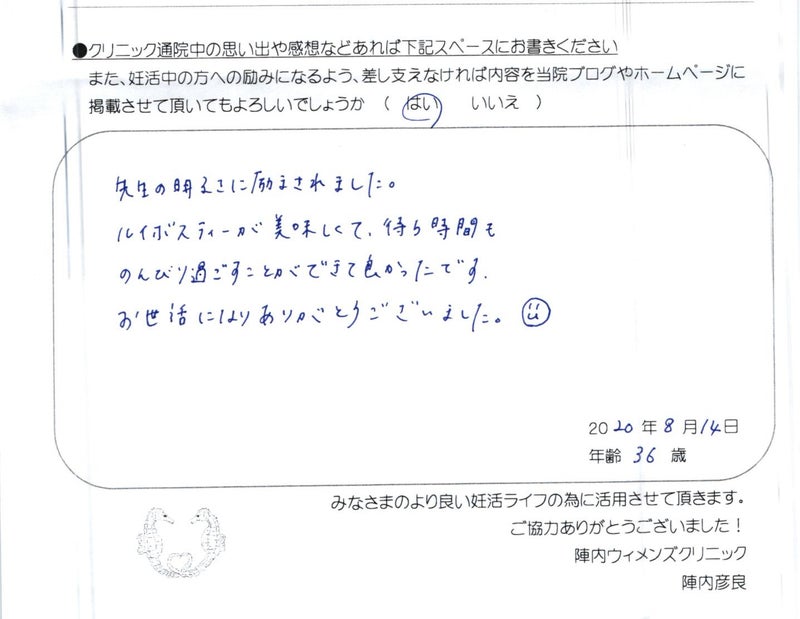 ●クリニック通院中の思い出や感想などあれば下記スペースにお書きください
また、妊活中の方への励みになるよう、差し支えなければ内容を当院ブログやホームページに
掲載させて頂いてもよろしいでしょうか （ はい いいえ ）
先生の明るさに励まされました。
ルイボスティーが美味しくて、待ち時間も
のんびり過ごすことができて良かったです。
お世話になりありがとうございました。
2020年8月14日
年齢 36 歳
みなさまのより良い妊活ライフの為に活用させて頂きます。
ご協力ありがとうございました！
陣内ウィメンズクリニック
陣内彦良